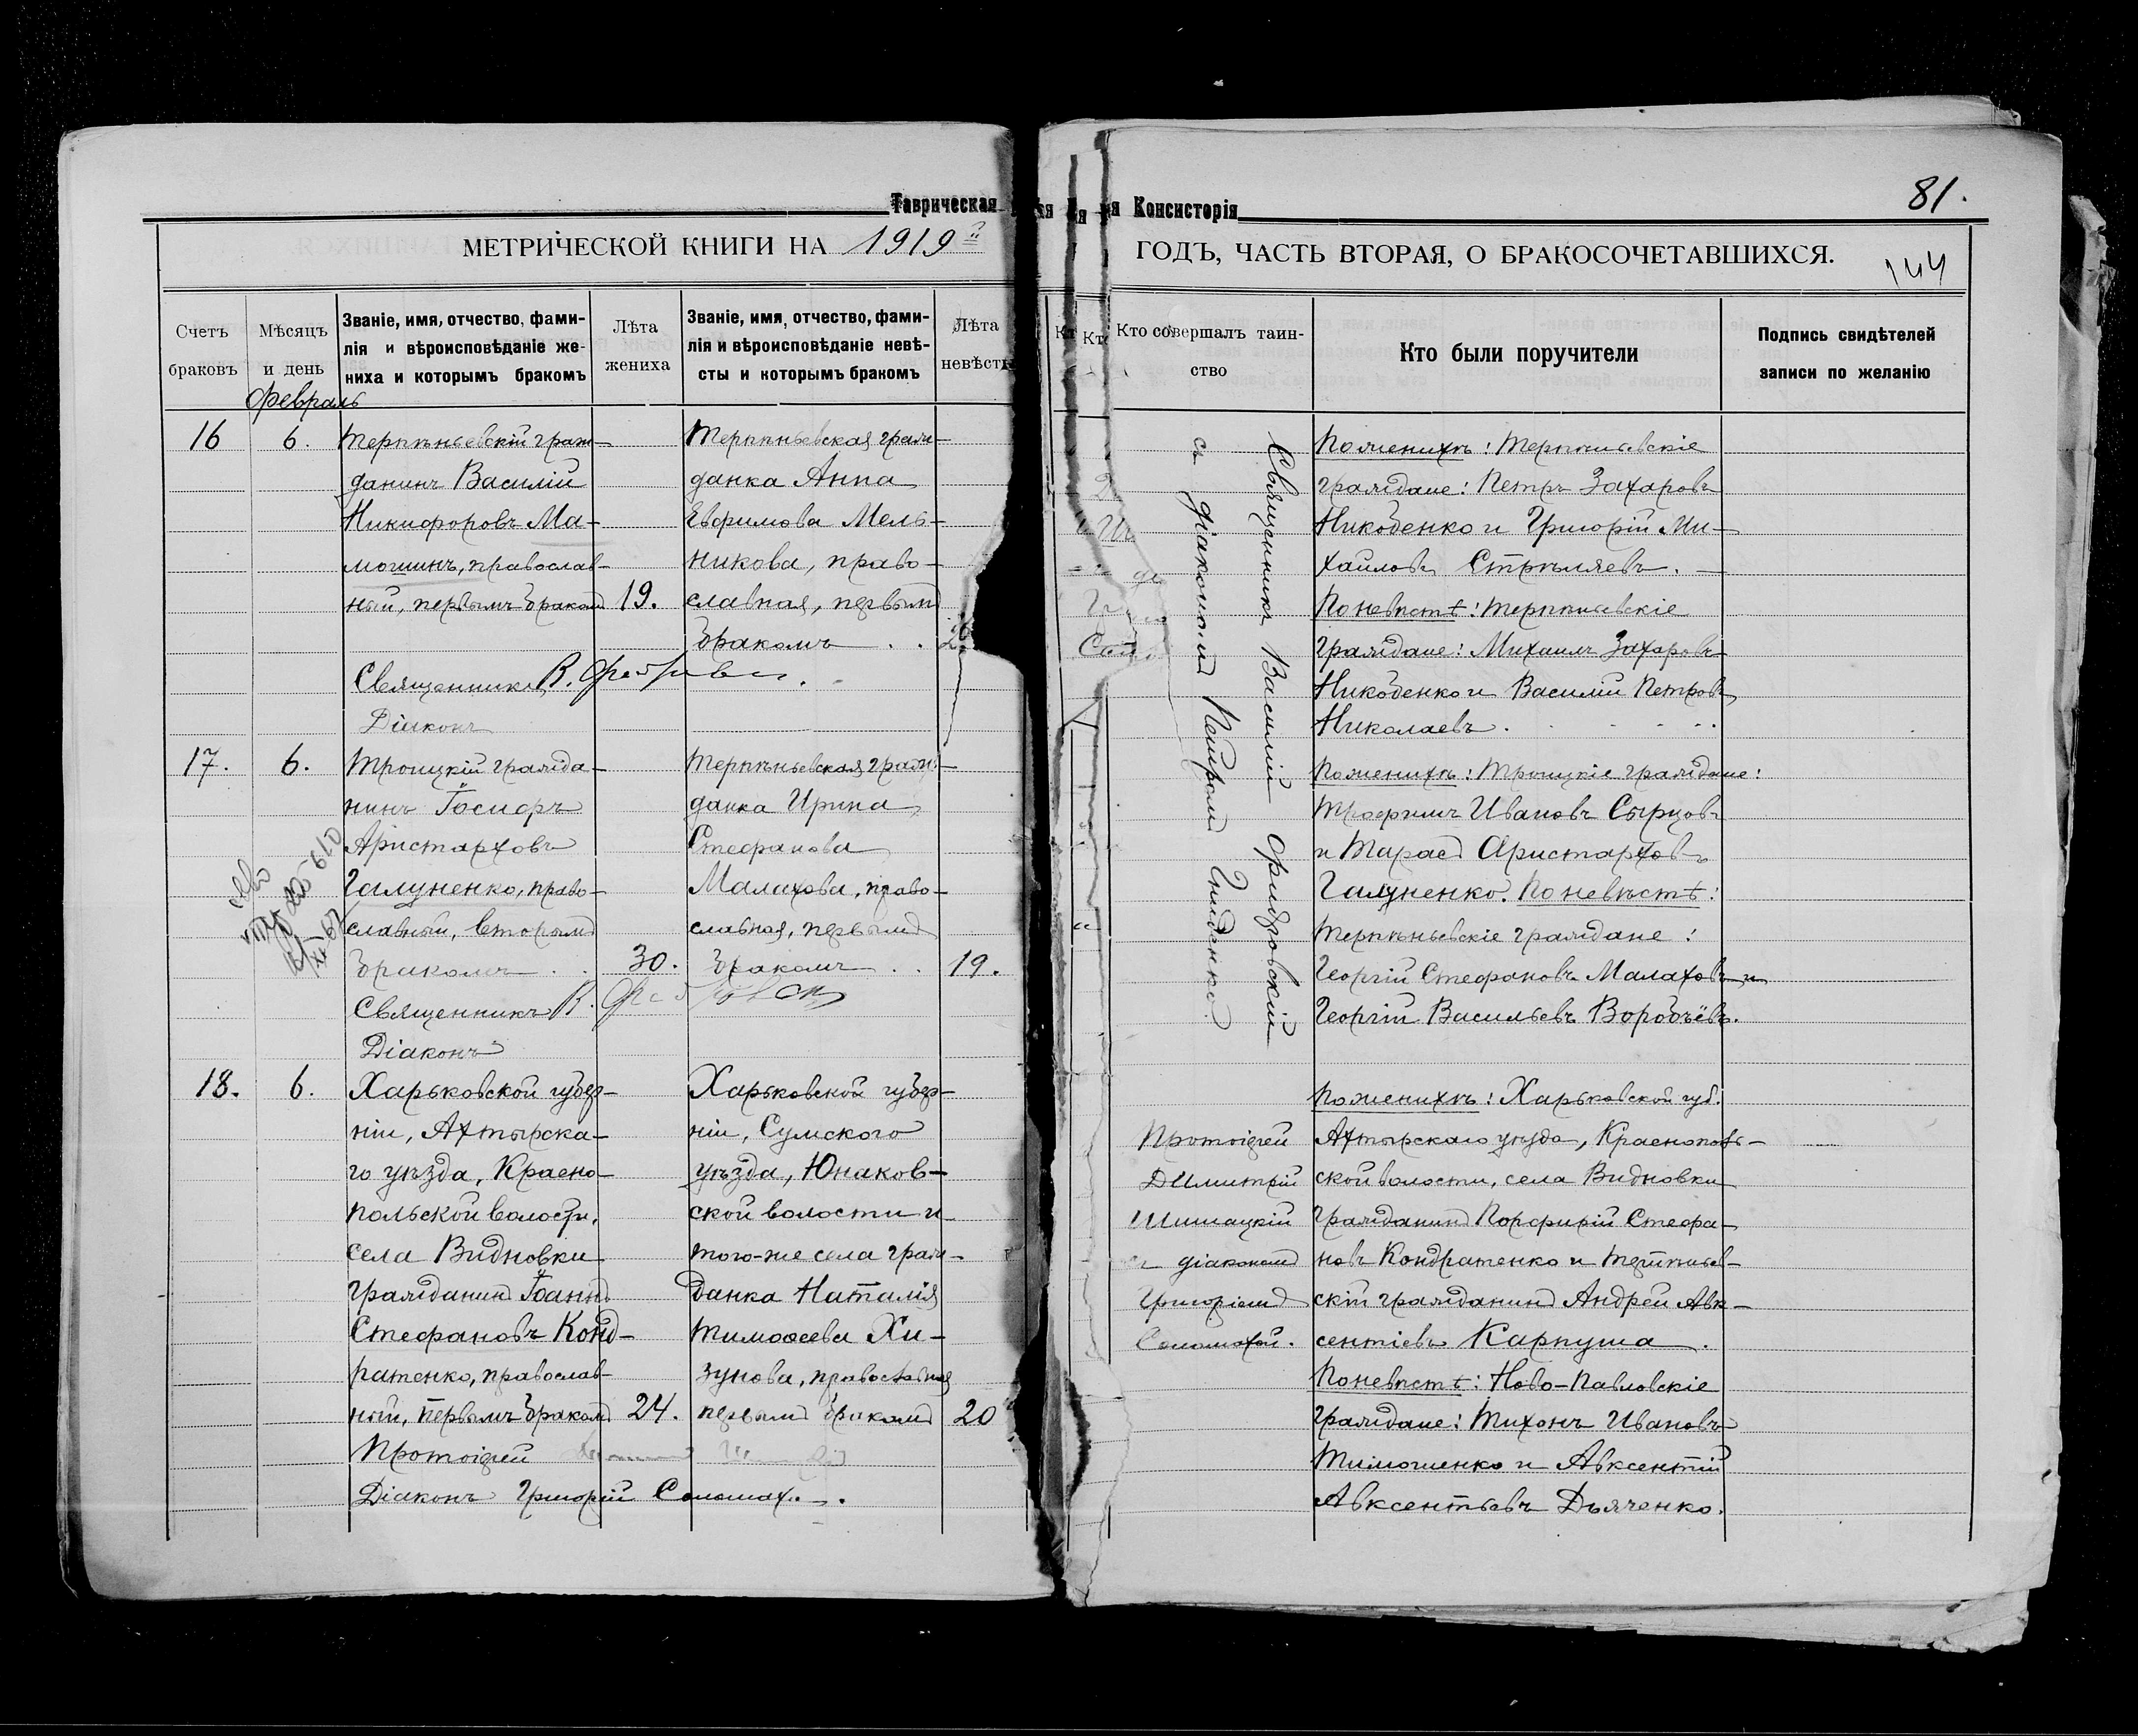 Таврическая
Консисторія
81.
МЕТРИЧЕСКОЙ КНИГИ НА 1919й
ГОДЪ, ЧАСТЬ ВТОРАЯ, О БРАКОСОЧЕТАВШИХСЯ.
144
Счетъ
браковъ
Мѣсяцъ
и день
Званіе, имя, отчество, фами-
лія и вѣроисповѣданіе же-
ниха и которымъ бракомъ
Лѣта
жениха
Званіе, имя, отчество, фами-
лія и вѣроисповѣданіе невѣ-
сты и которымъ бракомъ
Лѣта
невѣсты
Кто совершалъ таин-
ство
Кто были поручители
Подпись свидѣтелей
записи по желанію
Февраль
16
6.
Терпѣньевскій граж-
данинъ Василій
Никифоровъ Ма-
мошинъ, православ-
ный, первымъ бракомъ
19.
Священникъ В.
Діаконъ
Терпѣньевская граж-
данка Анна
Евфимова Мель-
никова, право-
славная, первымъ
бракомъ . .
Священникъ Василій Фидровскій
съ діакономъ Петромъ Гниденко.
По женихѣ: Терпѣньевскіе
граждане: Петръ Захаровъ
Никоденко и Григорій Ми-
хайловъ Стрѣляевъ.
По невѣстѣ: Терпѣньевскіе
граждане: Михаилъ Захаровъ
Никоденко и Василій Петровъ
Николаевъ.
17.
6.
Троицкій гражда-
нинъ Іосифъ
Аристарховъ
Галуненко, право-
славный, вторымъ
бракомъ . .
30.
Священникъ В.
Діаконъ
Терпѣньевская граж-
данка Ирина
Стефанова
Малахова, право-
славная, первымъ
бракомъ . .
19.
По женихѣ: Троицкіе граждане:
Трофимъ Ивановъ Сырцовъ
и Тарасъ Аристарховъ
Галуненко. По невѣстѣ:
Терпѣньевскіе граждане:
Георгій Стефановъ Малаховъ и
Георгій Васильевъ Воробьёвъ.
18.
6.
Харьковской губер-
ніи, Ахтырска-
го уѣзда, Красно-
польской волости,
села Видновки
гражданинъ Іоаннъ
Стефановъ Конд-
ратенко, православ-
ный, первымъ бракомъ
24.
Протоіерей
Діаконъ Григорій Соломаха.
Харьковской губер-
ніи, Сумского
уѣзда, Юнаков-
ской волости и
того-же села граж-
данка Наталія
Тимофеева Хи-
зунова, православная
первымъ бракомъ
20
Протоіерей
Димитрій
Шишацкій
съ діакономъ
Григоріемъ
Соломахой.
По женихѣ: Харьковской губ.
Ахтырскаго уѣзда, Краснополь-
ской волости, села Видновки
гражданинъ Порфирій Стефа-
новъ Кондратенко и Терпѣньев-
скій гражданинъ Андрей Авк-
сентіевъ Карпуша.
По невѣстѣ: Ново-Павловскіе
граждане: Тихонъ Ивановъ
Тимошенко и Авксентій
Авксентьевъ Дьяченко.